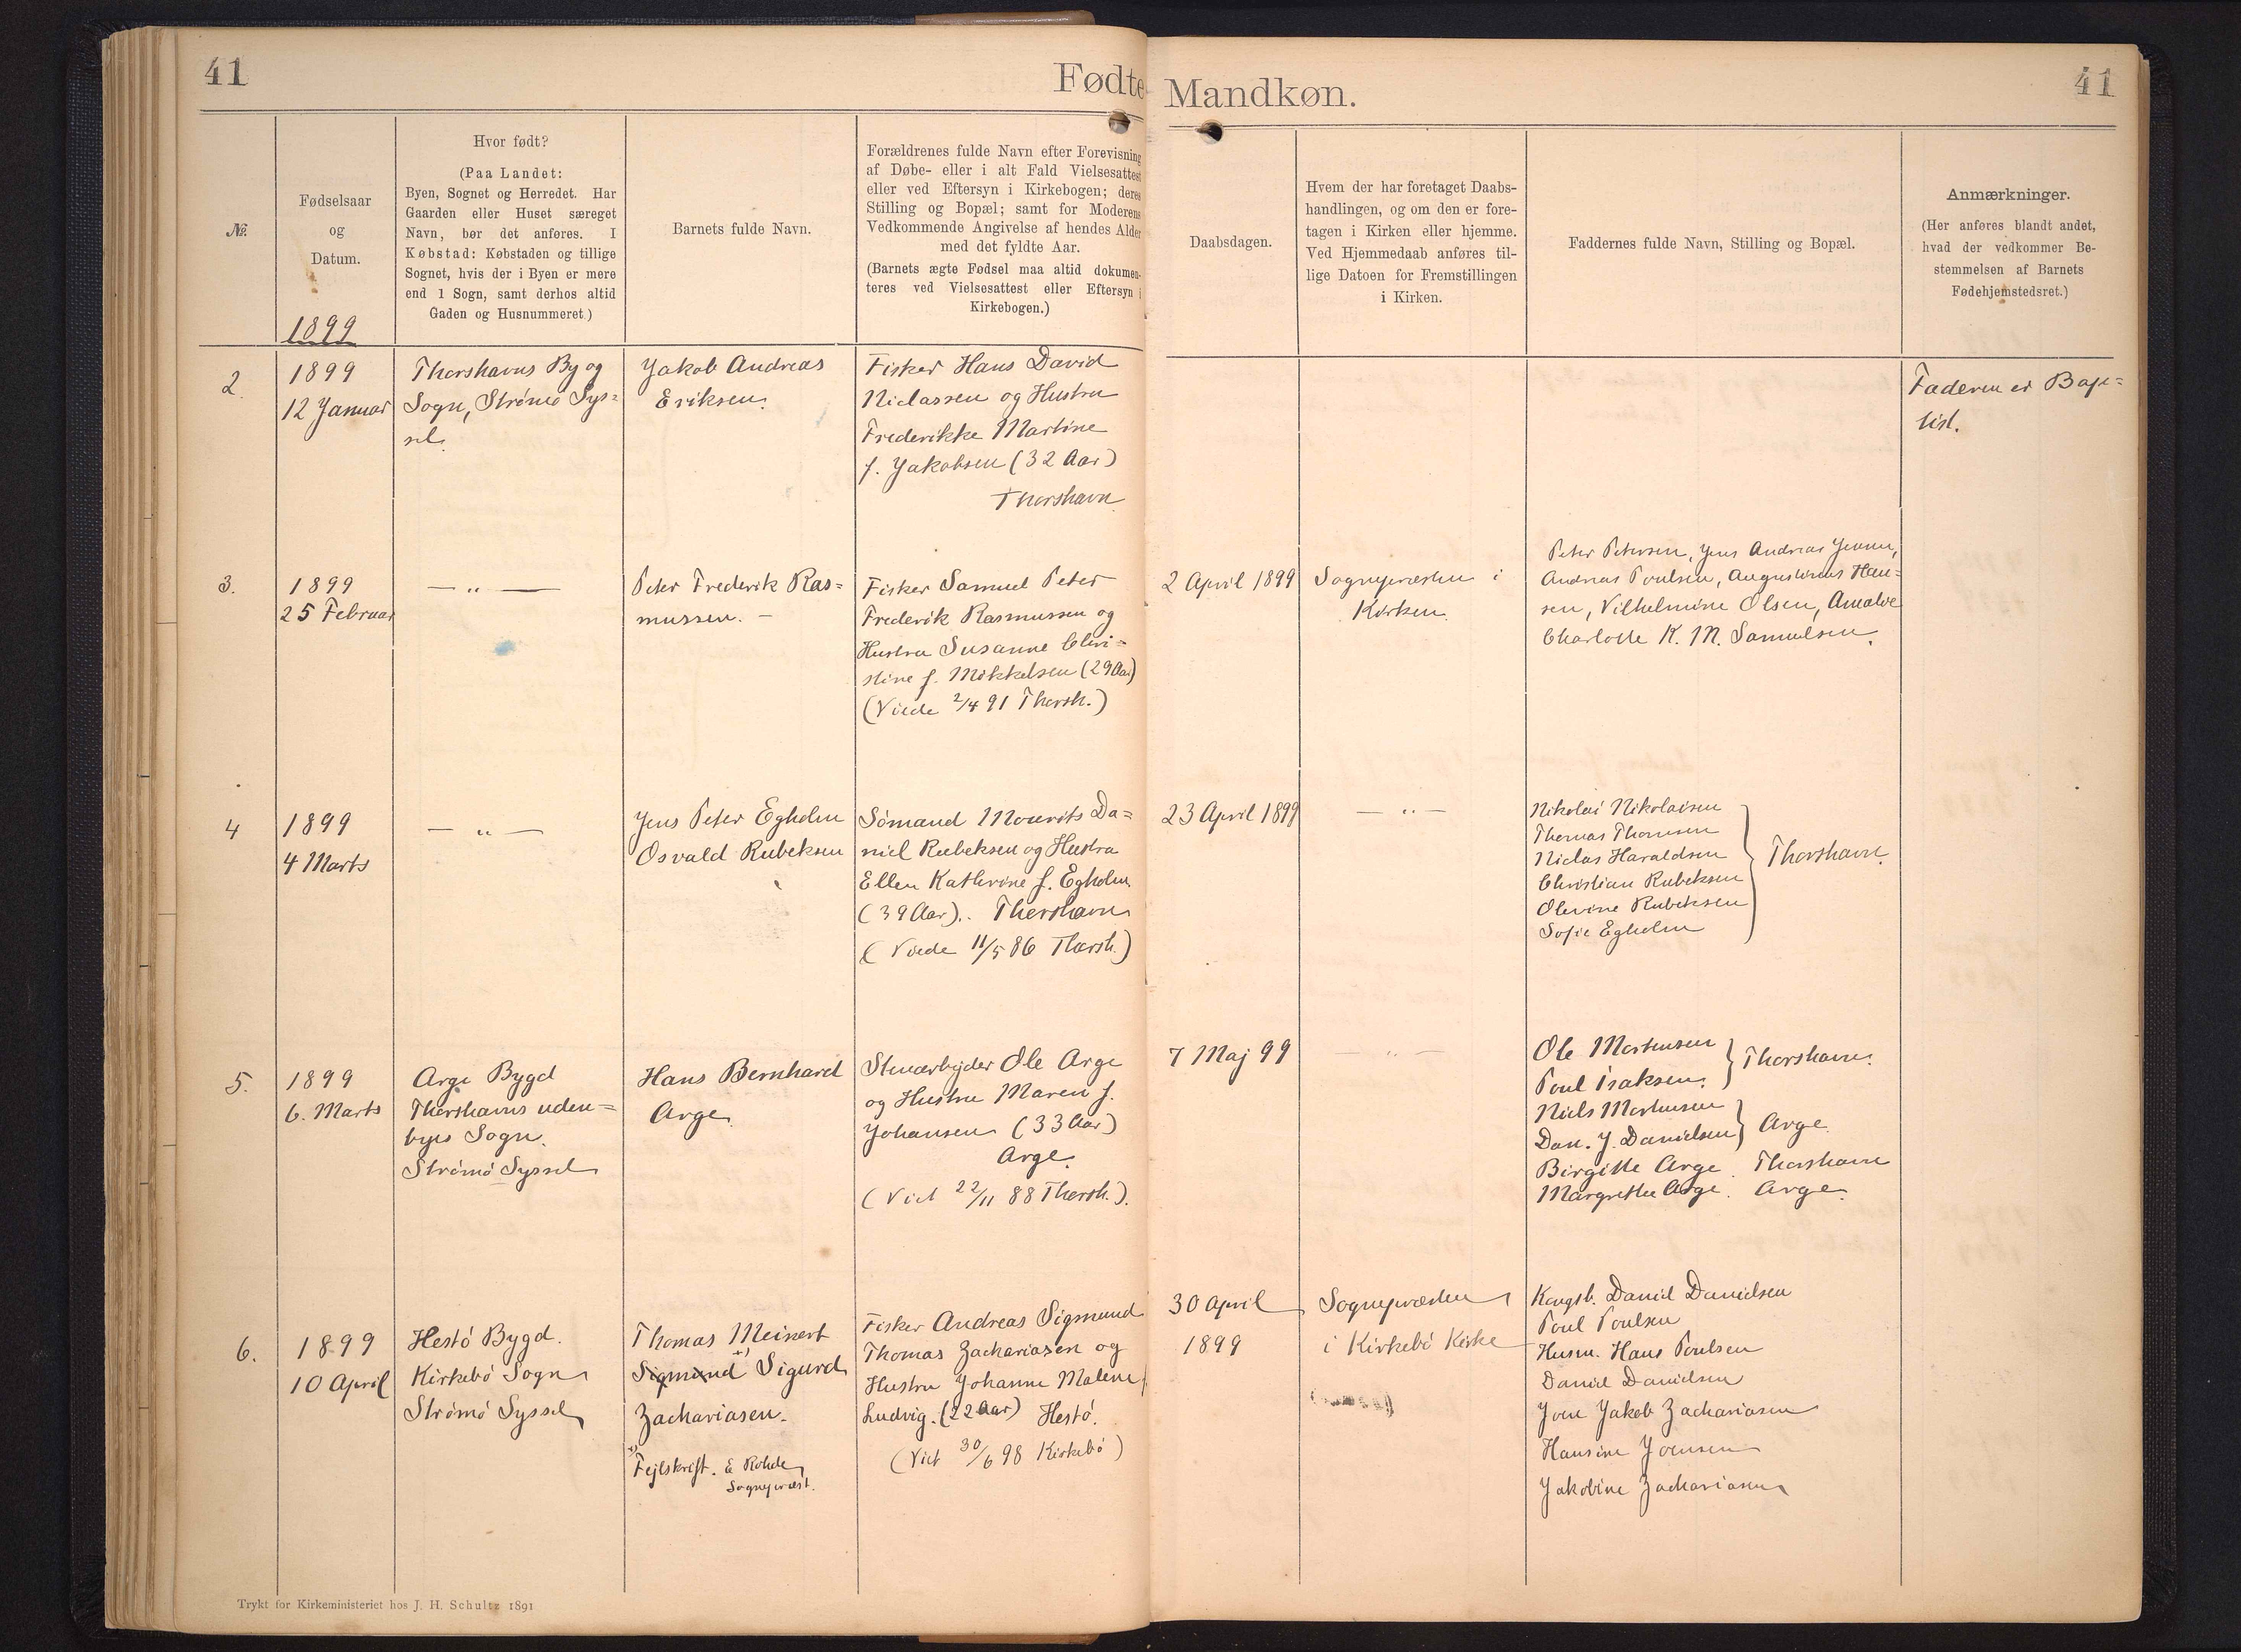 41
Fødte
Mandkøn.
41
№.
Fødselsaar
og
Datum.
1899
Hvor født?
(Paa Landet:
Byen, Sognet og Herredet. Har
Gaarden eller Huset særeget
Navn, bør det anføres. I
Købstad: Købstaden og tillige
Sognet, hvis der i Byen er mere
end 1 Sogn, samt derhos altid
Gaden og Husnummeret.)
Barnets fulde Navn.
Forældrenes fulde Navn efter Forevisning
af Døbe- eller i alt Fald Vielsesattest
eller ved Eftersyn i Kirkebogen; deres
Stilling og Bopæl; samt for Moderens
Vedkommende Angivelse af hendes Alder
med det fyldte Aar.
(Barnets ægte Fødsel maa altid dokumen-
teres ved Vielsesattest eller Eftersyn i
Kirkebogen.)
Daabsdagen.
Hvem der har foretaget Daabs-
handlingen, og om den er fore-
tagen i Kirken eller hjemme.
Ved Hjemmedaab anføres til-
lige Datoen for Fremstillingen
i Kirken.
Faddernes fulde Navn, Stilling og Bopæl.
Anmærkninger.
(Her anføres blandt andet,
hvad der vedkommer Be-
stemmelsen af Barnets
Fødehjemstedsret.)
2.
1899
12 Januar
Thorshavns By og
Sogn, Strömö Sys=
sel.
Jakob Andreas
Eriksen.
Fisker Hans David
Niclassen og Hustru
Frederikke Martine
f. Jakobsen (32 Aar)
Thorshavn
Faderen er Bap=
tist.
3.
1899
25 Februar
— „ —
Peter Frederik Ras=
mussen. —
Fisker Samuel Peter
Frederik Rasmussen og
Hustru Susanne Chri=
stine f. Mikkelsen (29 Aar)
(Viede 2/4 91 Thorsh.)
2 April 1899
Sognepræsten i
Kirken.
Peter Petersen, Jens Andreas Jensen,
Andreas Poulsen, Augustinus Han=
sen, Vilhelmine Olsen, Amalie
Charlotte K. M. Samuelsen.
4
1899
4 Marts
— „ —
Jens Peter Egholm
Osvald Rubeksen
Sömand Mourits Da=
niel Rubeksen og Hustru
Ellen Kathrine f. Egholm.
(39 Aar). Thorshavn
(Viede 11/5 86 Thorsh.)
23 April 1899
— „ —
Nikolai Nikolaisen
Thomas Thomsen
Niclas Haraldsen
Christian Rubeksen
Olevine Rubeksen
Sofie Egholm
Thorshavn.
5.
1899
6. Marts
Arge Bygd
Thorshavns uden=
byes Sogn.
Strömö Syssel
Hans Bernhard
Arge.
Stenarbejder Ole Arge
og Hustru Maren f.
Johansen (33 Aar)
Arge.
(Viet 22/11 88 Thorsh.).
7 Maj 99
— „ —
Ole Mortensen
Poul Isaksen.
Thorshavn.
Niels Mortensen
Dan. J. Danielsen
Arge.
Birgitte Arge. Thorshavn
Margrethe Arge. Arge.
6.
1899
10 April
Hestö Bygd.
Kirkebö Sogn
Strömö Syssel
Thomas Meinert
Sigmund +) Sigurd
Zachariasen.
+) Fejlskrift. E Rohde
Sognepræst.
Fisker Andreas Sigmund
Thomas Zachariasen og
Hustru Johanne Malene f.
Ludvig. (22 Aar) Hestö.
(Viet 30/6 98 Kirkebö)
30 April
1899
Sognepræsten
i Kirkebö Kirke
Kongsb. Daniel Danielsen
Poul Poulsen
Husm. Hans Poulsen
Daniel Danielsen
Joen Jakob Zachariasen
Hansine Joensen
Jakobine Zachariasen
Trykt for Kirkeministeriet hos J. H. Schultz 1891